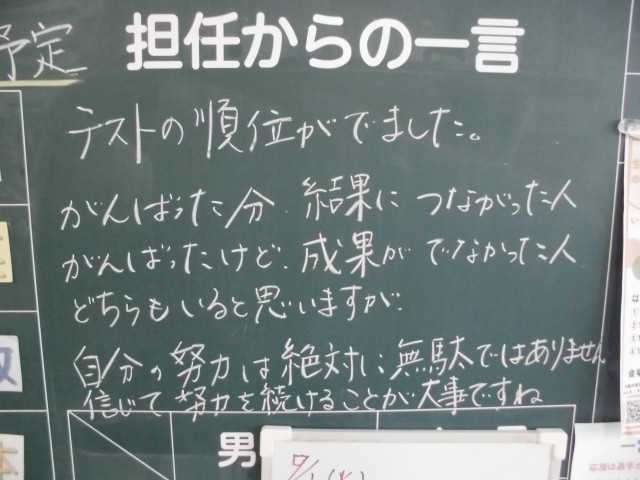 予定
担任からの一言
テストの順位がでました。
がんばった分、結果に つながった人
がんばったけど、成果が でなかった人
どちらもいると思いますが、
自分の努力は絶対に無駄ではありません
信じて努力を続けることが大事ですね
男